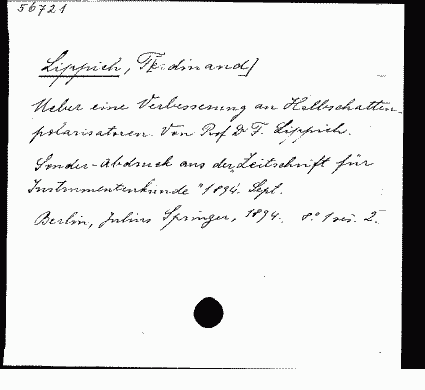 56721
Lippich, F[erdinand]
Ueber eine Verbesserung an Halbschatten-
polarisatoren. Von Prof Dr F. Lippich.
Sonder-Abdruck aus der „Zeitschrift für
Instrumentenkunde" 1894. Sept.
Berlin, Julius Springer, 1894. 8° 1 2.